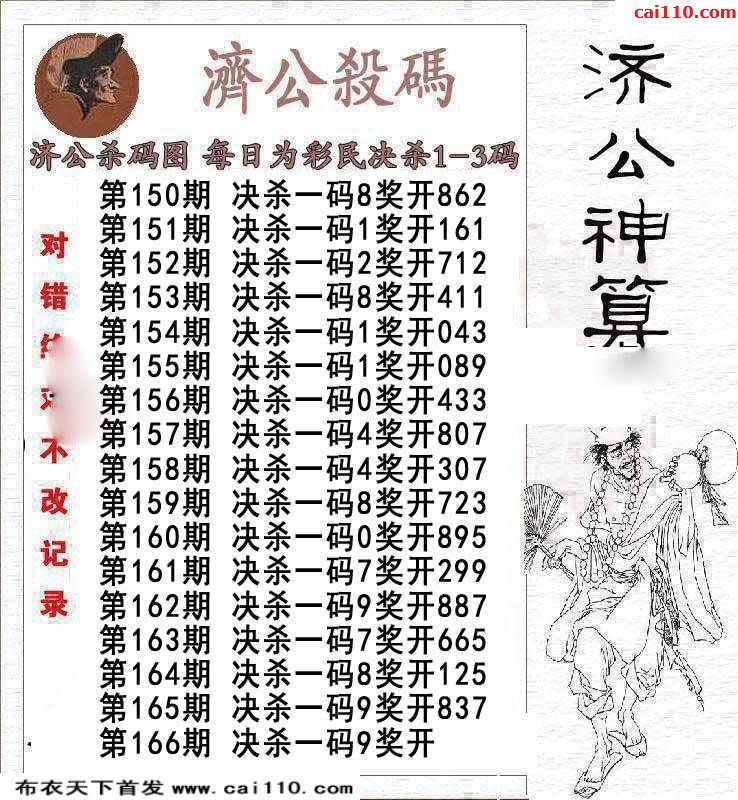 cai110.com
濟公殺碼
济公杀码图 每日为彩民决杀1-3码
第150期 决杀一码8奖开862
第151期 决杀一码1奖开161
第152期 决杀一码2奖开712
第153期 决杀一码8奖开411
第154期 决杀一码1奖开043
第155期 决杀一码1奖开089
第156期 决杀一码0奖开433
第157期 决杀一码4奖开807
第158期 决杀一码4奖开307
第159期 决杀一码8奖开723
第160期 决杀一码0奖开895
第161期 决杀一码7奖开299
第162期 决杀一码9奖开887
第163期 决杀一码7奖开665
第164期 决杀一码8奖开125
第165期 决杀一码9奖开837
第166期 决杀一码9奖开
对错不改记录
济公神算
布衣天下首发 www.cai110.com